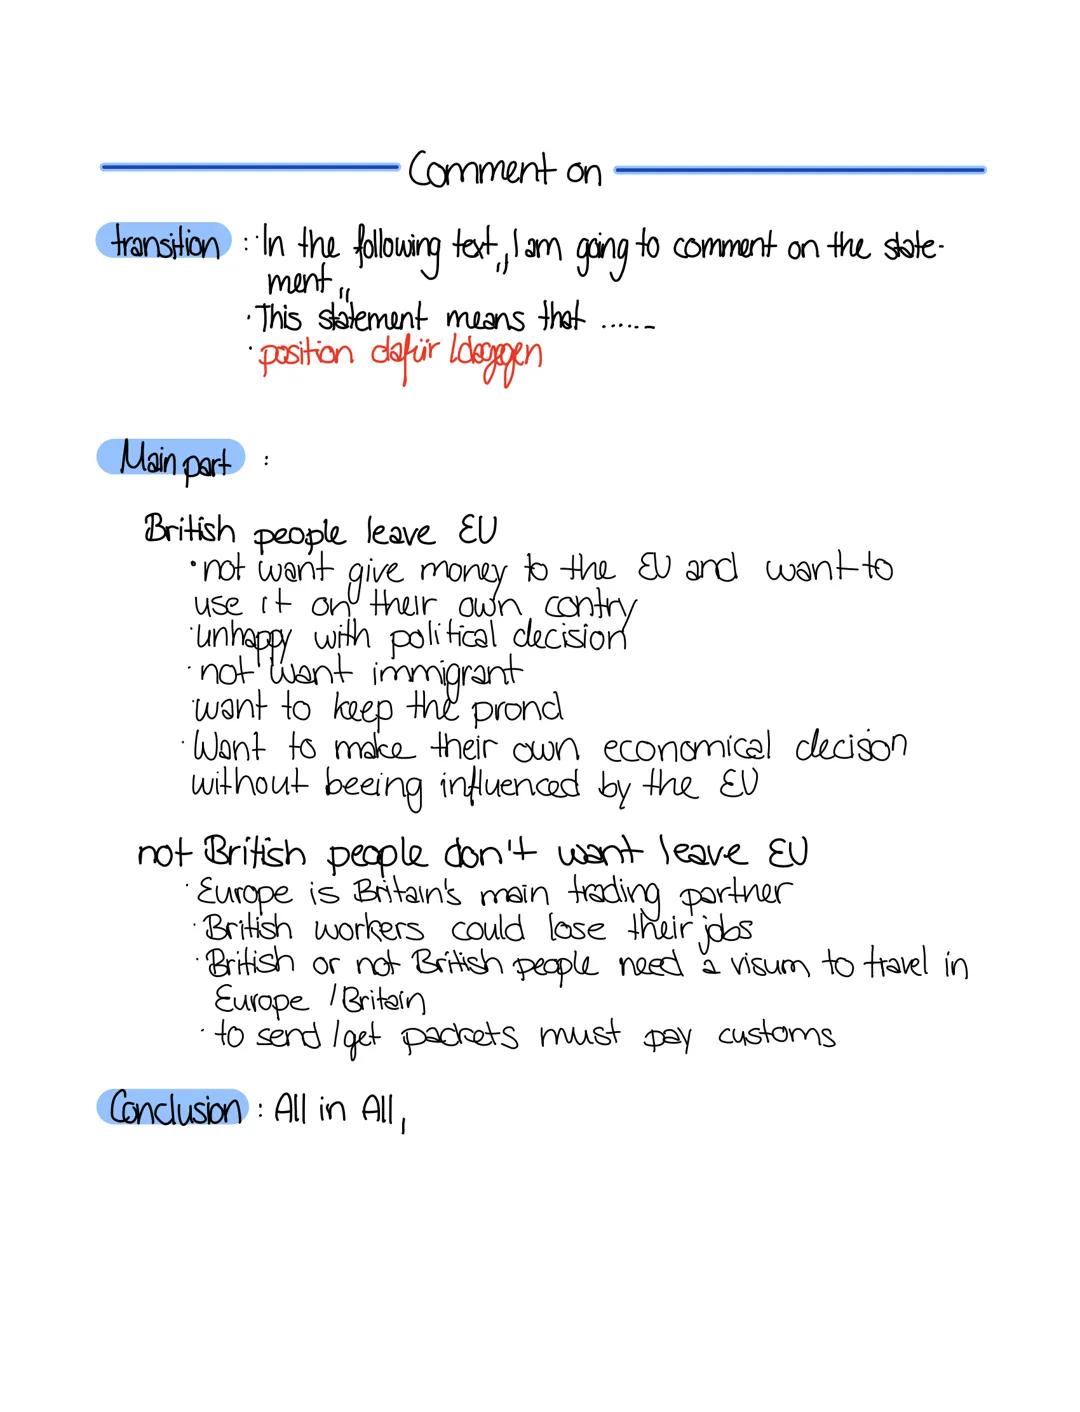 Comment on
transition : · In the following text „I am going to comment on the state-
ment „
· This statement means that ......
· position dafür / dagegen
Main part :
British people leave EU
· not want give money to the EU and want to
use it on their own contry
· unhappy with political decision
· not want immigrant
· want to keep the prond
· Want to make their own economical decison
without beeing influenced by the EU
not British people don't want leave EU
· Europe is Britain's main trading partner
· British workers could lose their jobs
· British or not British people need a visum to travel in
Europe / Britain
· to send / get packets must pay customs
Conclusion : All in All,